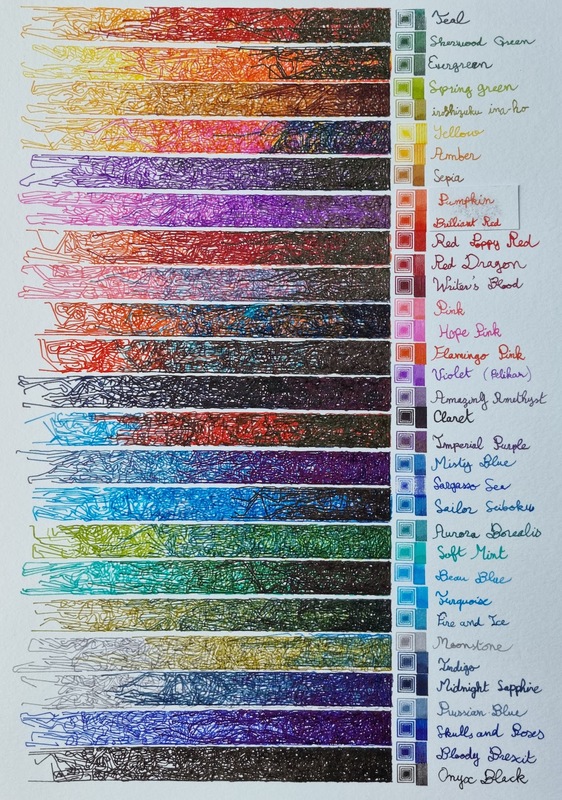 Teal
Sherwood Green
Evergreen
Spring green
iroshizuku ina-ho
Yellow
Amber
Sepia
Pumpkin
Brilliant Red
Red Poppy Red
Red Dragon
Writer's Blood
Pink
Hope Pink
Flamingo Pink
Violet (Pelikan)
Amazing Amethyst
Claret
Imperial Purple
Misty Blue
Sargasso Sea
Sailor Seiboku
Aurora Borealis
Soft Mint
Beau Blue
Turquoise
Fire and Ice
Moonstone
Indigo
Midnight Sapphire
Prussian Blue
Skulls and Roses
Bloody Brexit
Onyx Black